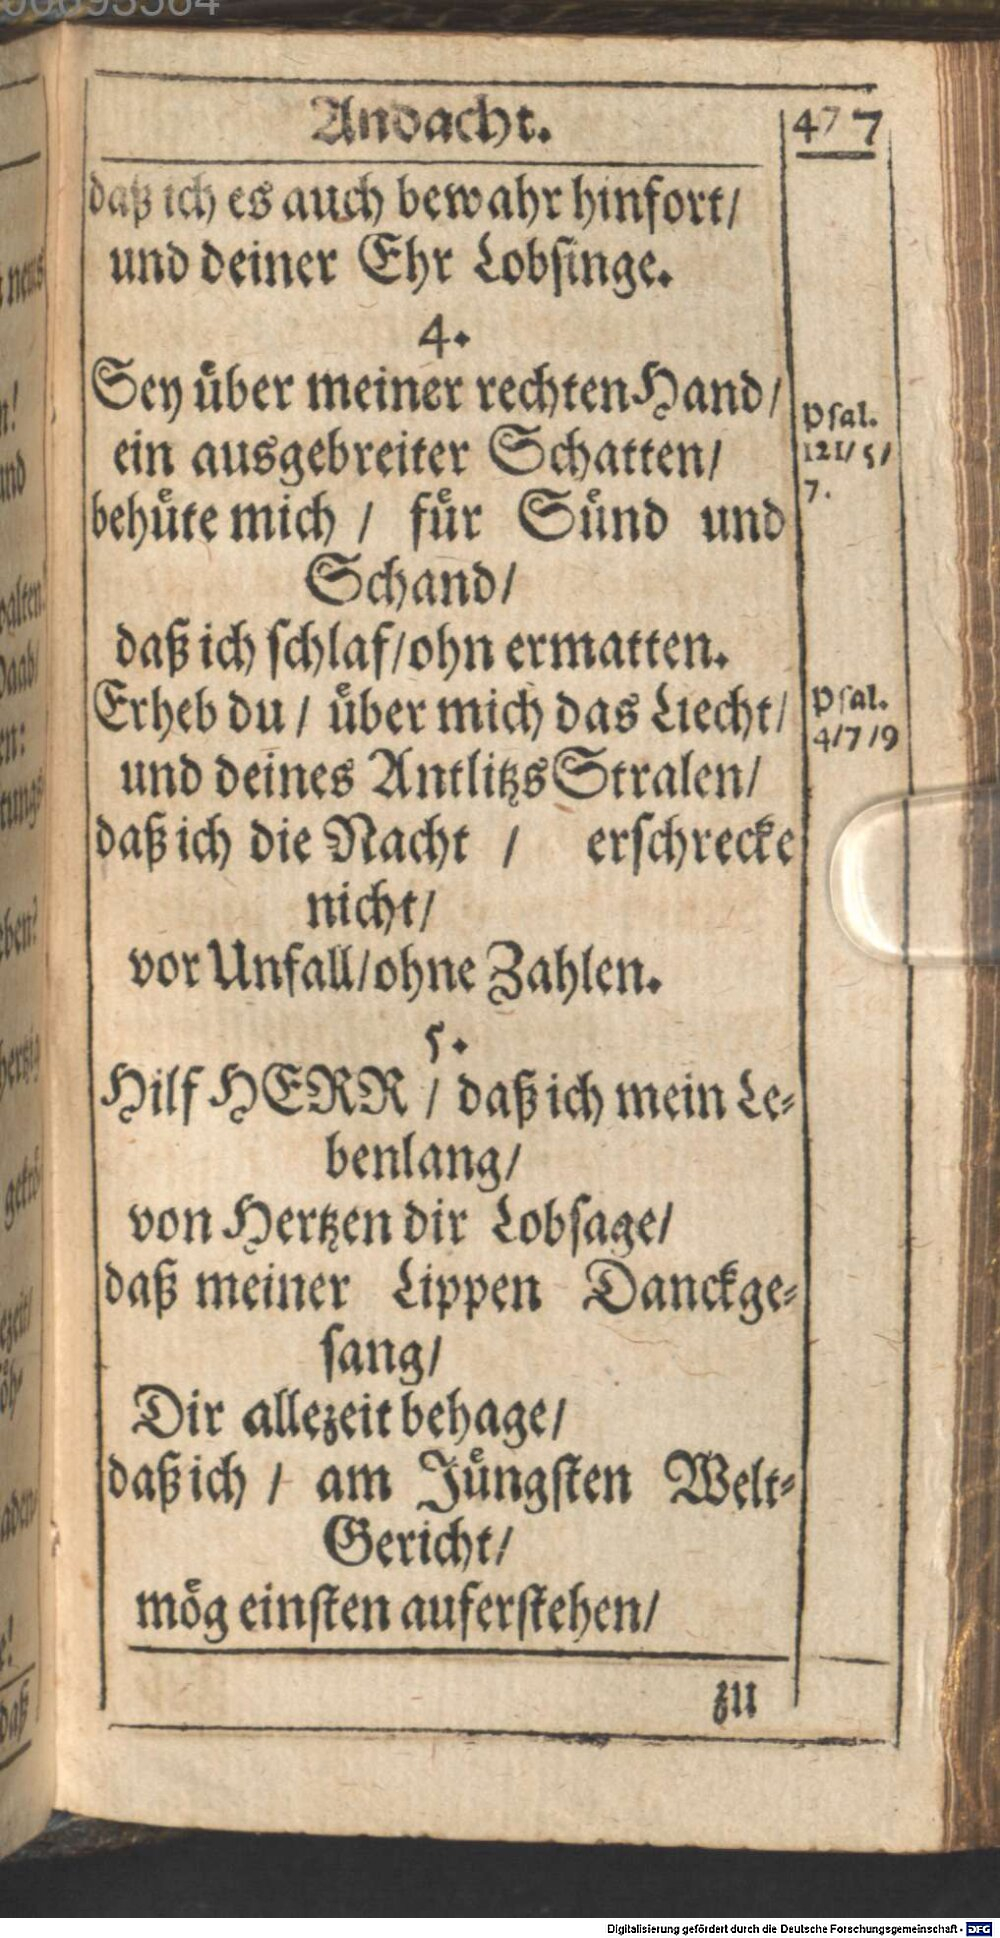 Andacht. 477
daß ich es auch bewahr hinfort/
und deiner Ehr Lobsinge.
4.
Sey uͤber meiner rechten Hand/
Psal.
ein ausgebreiter Schatten/
121/5/
7.
behuͤte mich / fuͤr Suͤnd und
Schand/
daß ich schlaf/ohn ermatten.
Erheb du / uͤber mich das Liecht/
Psal.
4/7/9
und deines Antlitzs Stralen/
daß ich die Nacht / erschrecke
nicht/
vor Unfall/ohne Zahlen.
5.
Hilf HERR / daß ich mein Le-
benlang/
von Hertzen dir Lobsage/
daß meiner Lippen Danckge-
sang/
Dir allezeit behage/
daß ich / am Juͤngsten Welt-
Gericht/
moͤg einsten auferstehen/
zu
Digitalisierung gefördert durch die Deutsche Forschungsgemeinschaft - DFG